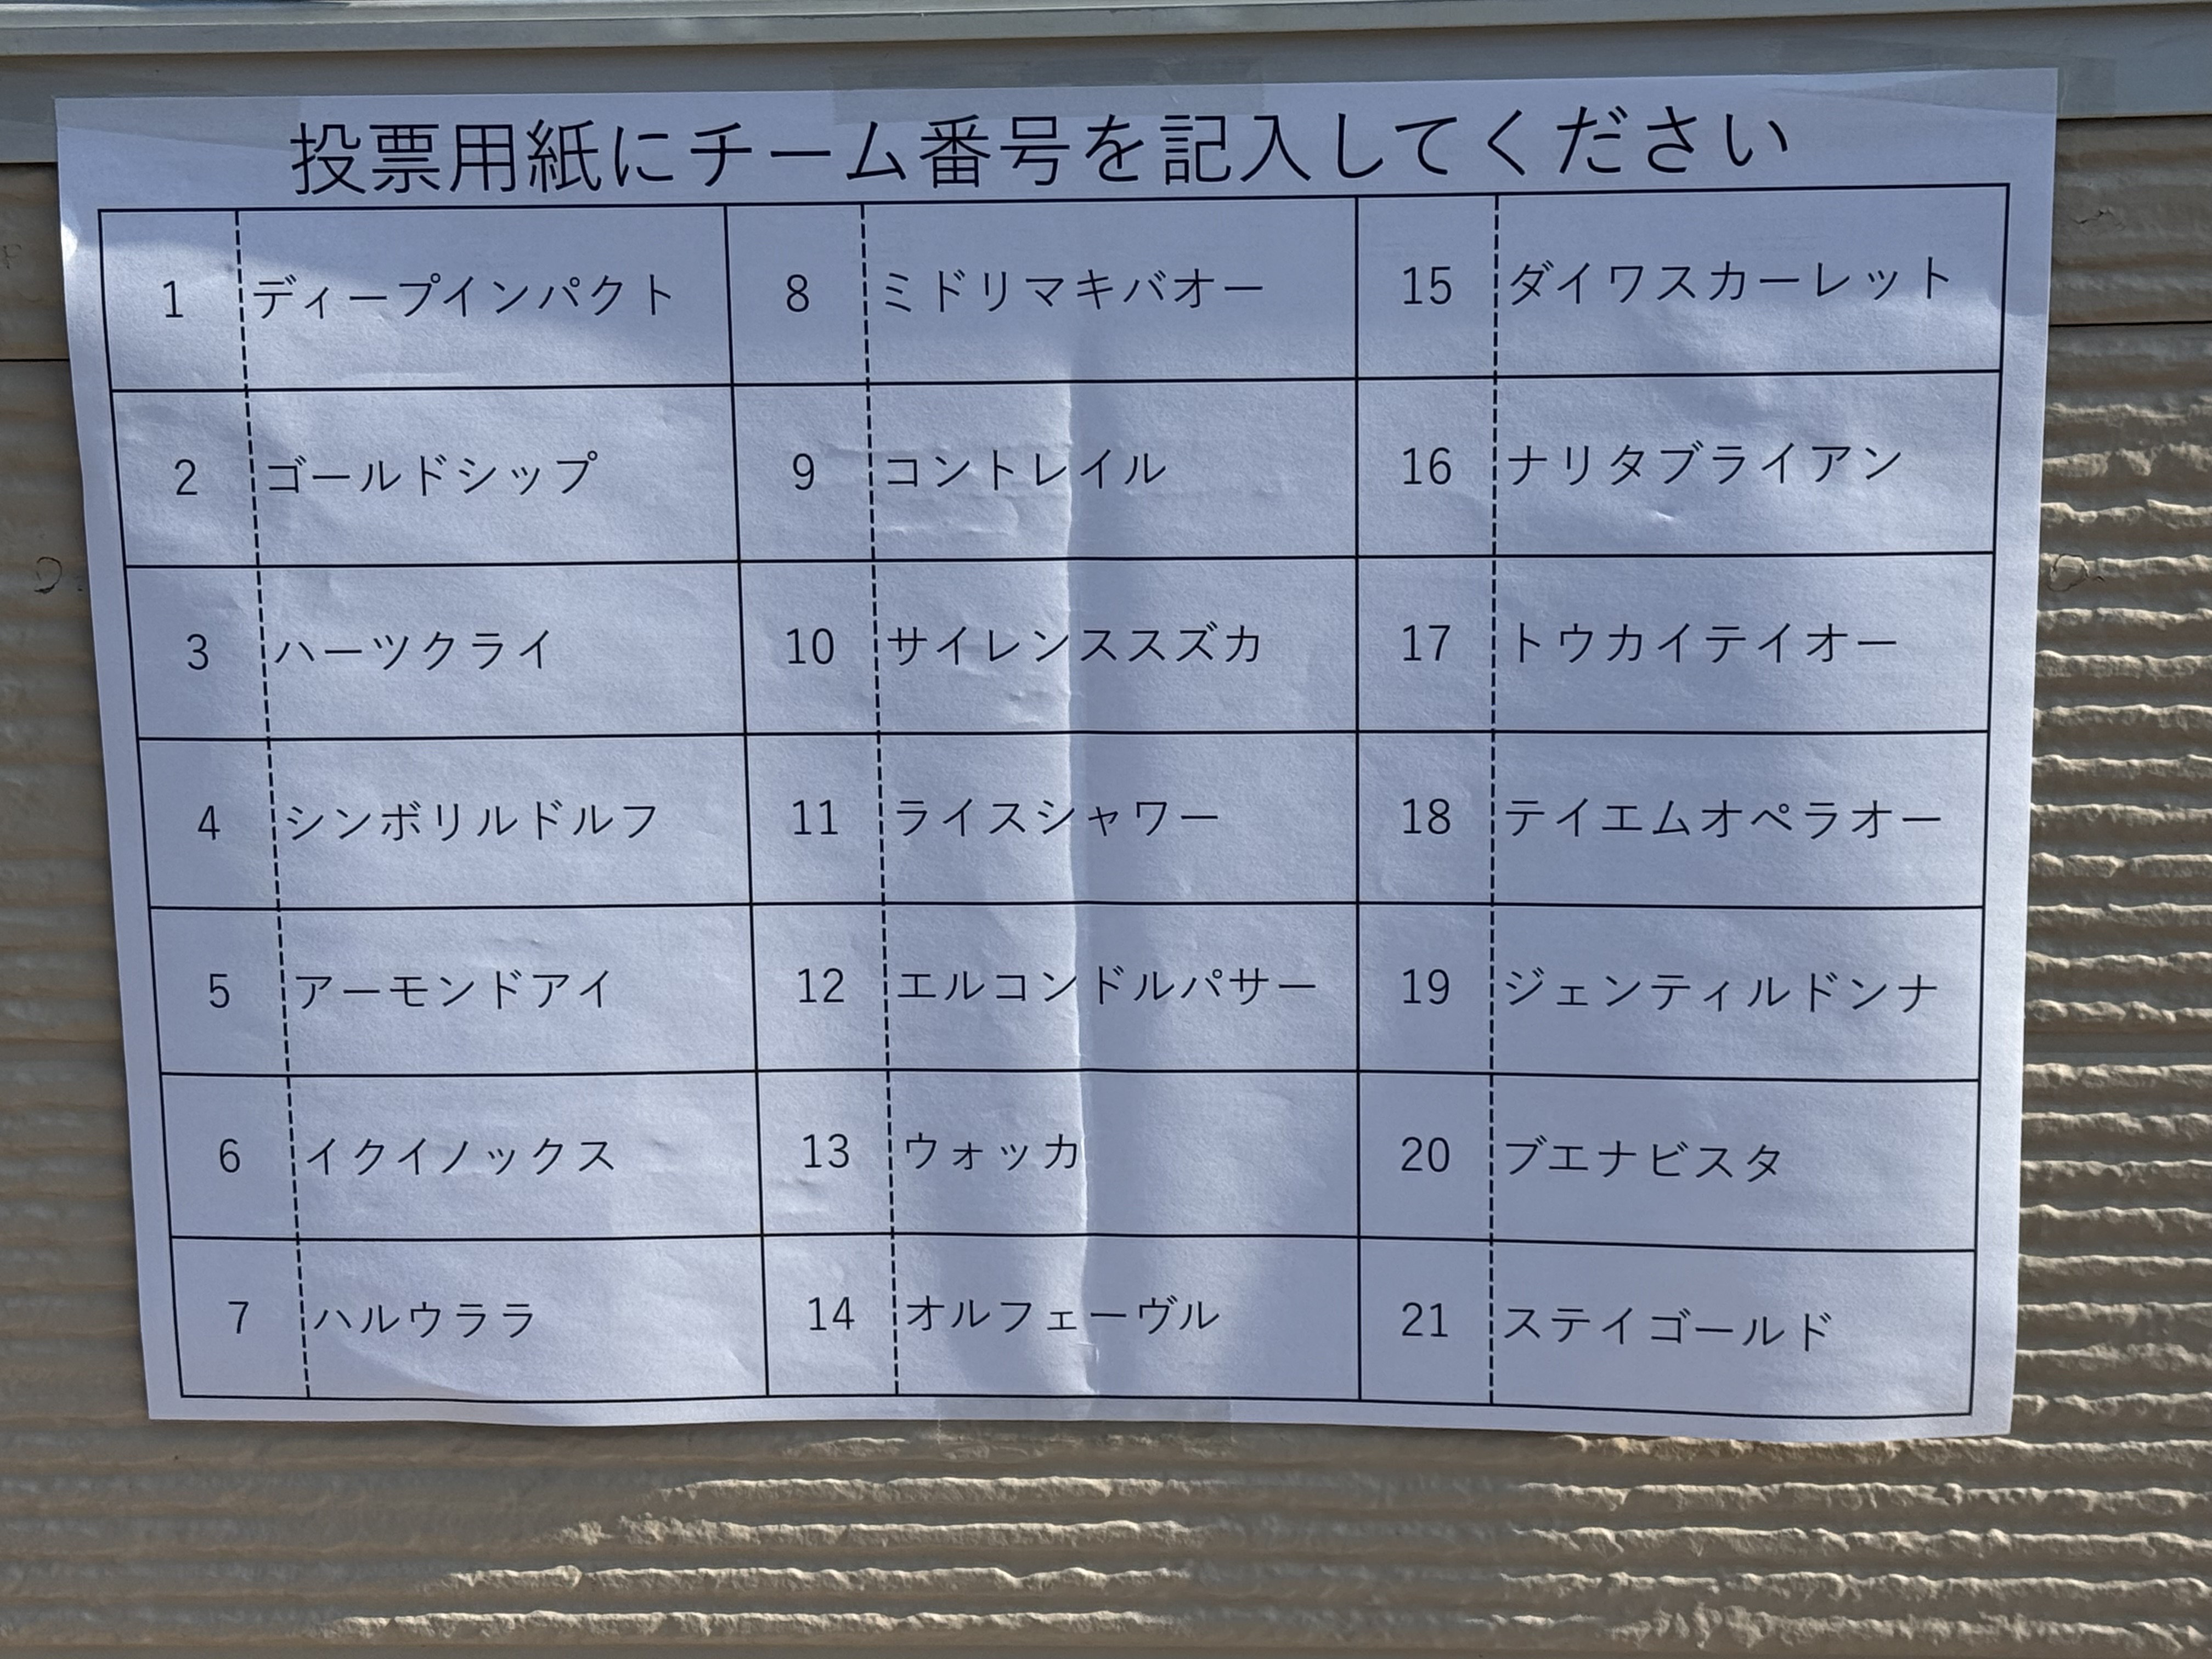 投票用紙にチーム番号を記入してください
1 ディープインパクト 8 ミドリマキバオー 15 ダイワスカーレット
2 ゴールドシップ 9 コントレイル 16 ナリタブライアン
3 ハーツクライ 10 サイレンススズカ 17 トウカイテイオー
4 シンボリルドルフ 11 ライスシャワー 18 テイエムオペラオー
5 アーモンドアイ 12 エルコンドルパサー 19 ジェンティルドンナ
6 イクイノックス 13 ウォッカ 20 ブエナビスタ
7 ハルウララ 14 オルフェーヴル 21 ステイゴールド